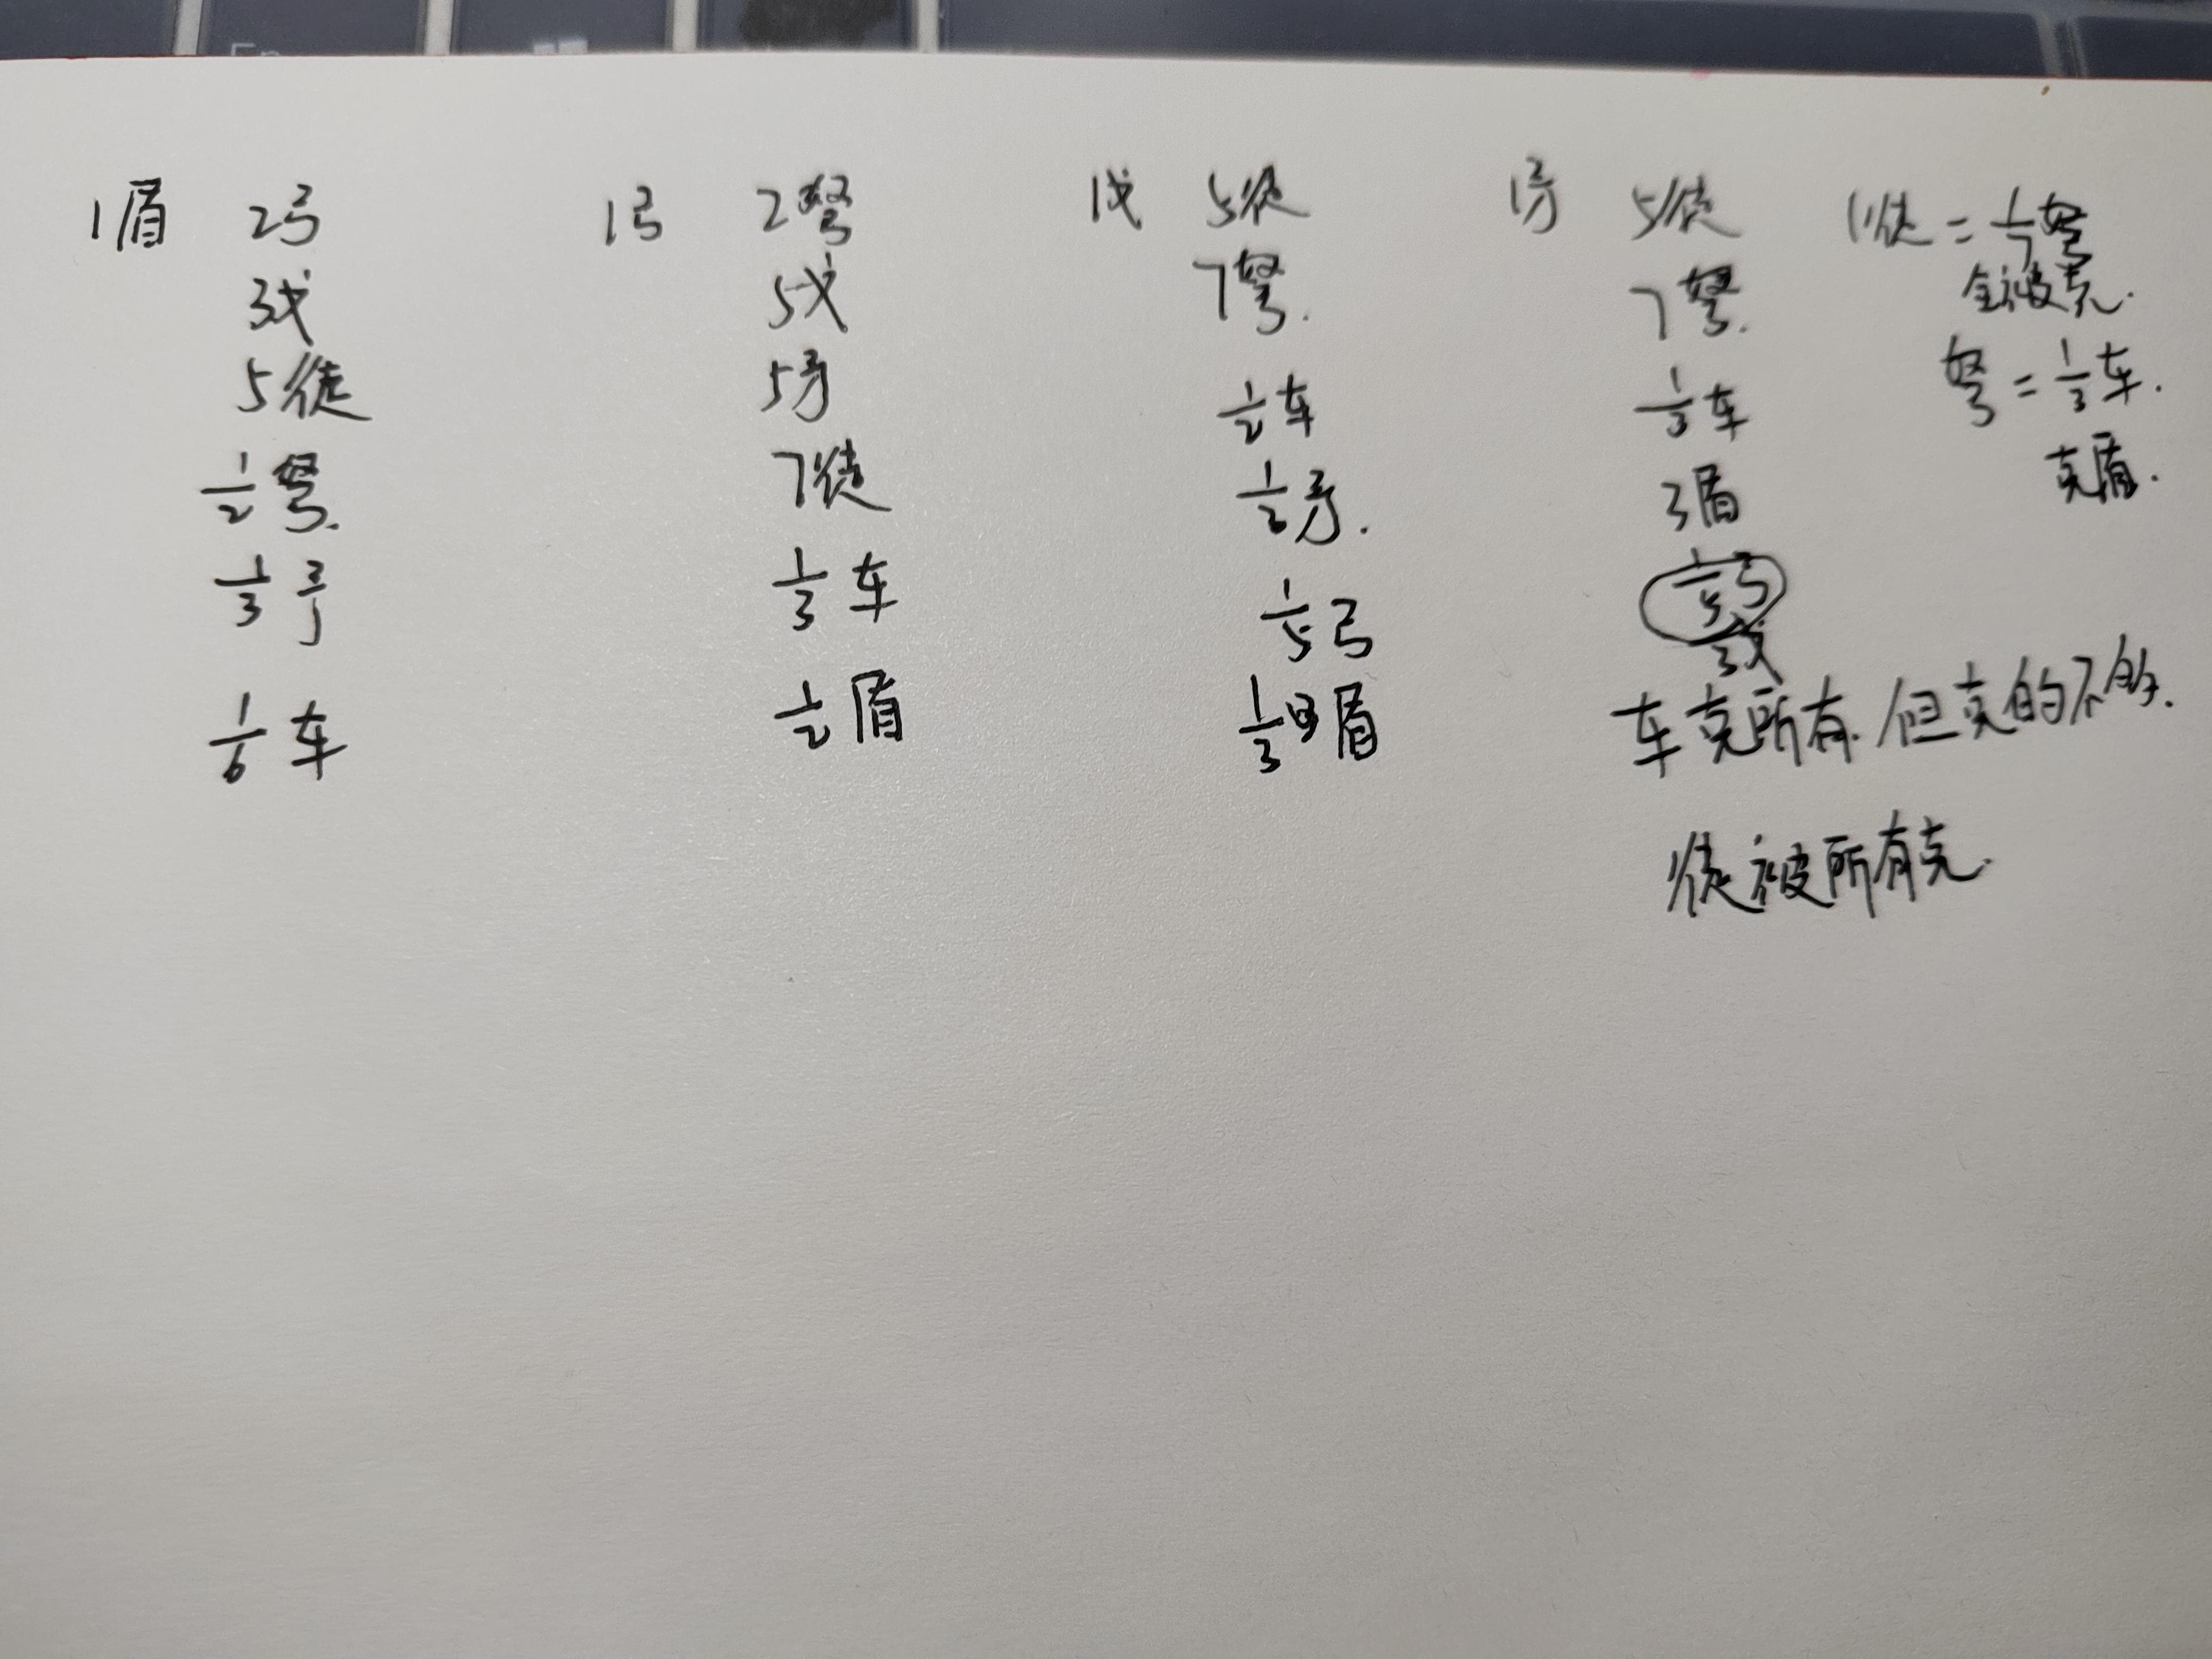 1盾 2弓
3戈
5徒
1/2弩.
1/3矛
1/6车
1弓 2弩
5戈
5矛
7徒
1/3车
1/2盾
1戈 5徒
7弩.
1/2车
1/2矛.
1/5弓
1/3盾
1矛 5徒
7弩.
1/3车
3盾
1/5弓
3戈
1徒=1/7弩
全被克.
弩=1/3车.
克盾.
车克所有.但克的不多.
徒被所有克.